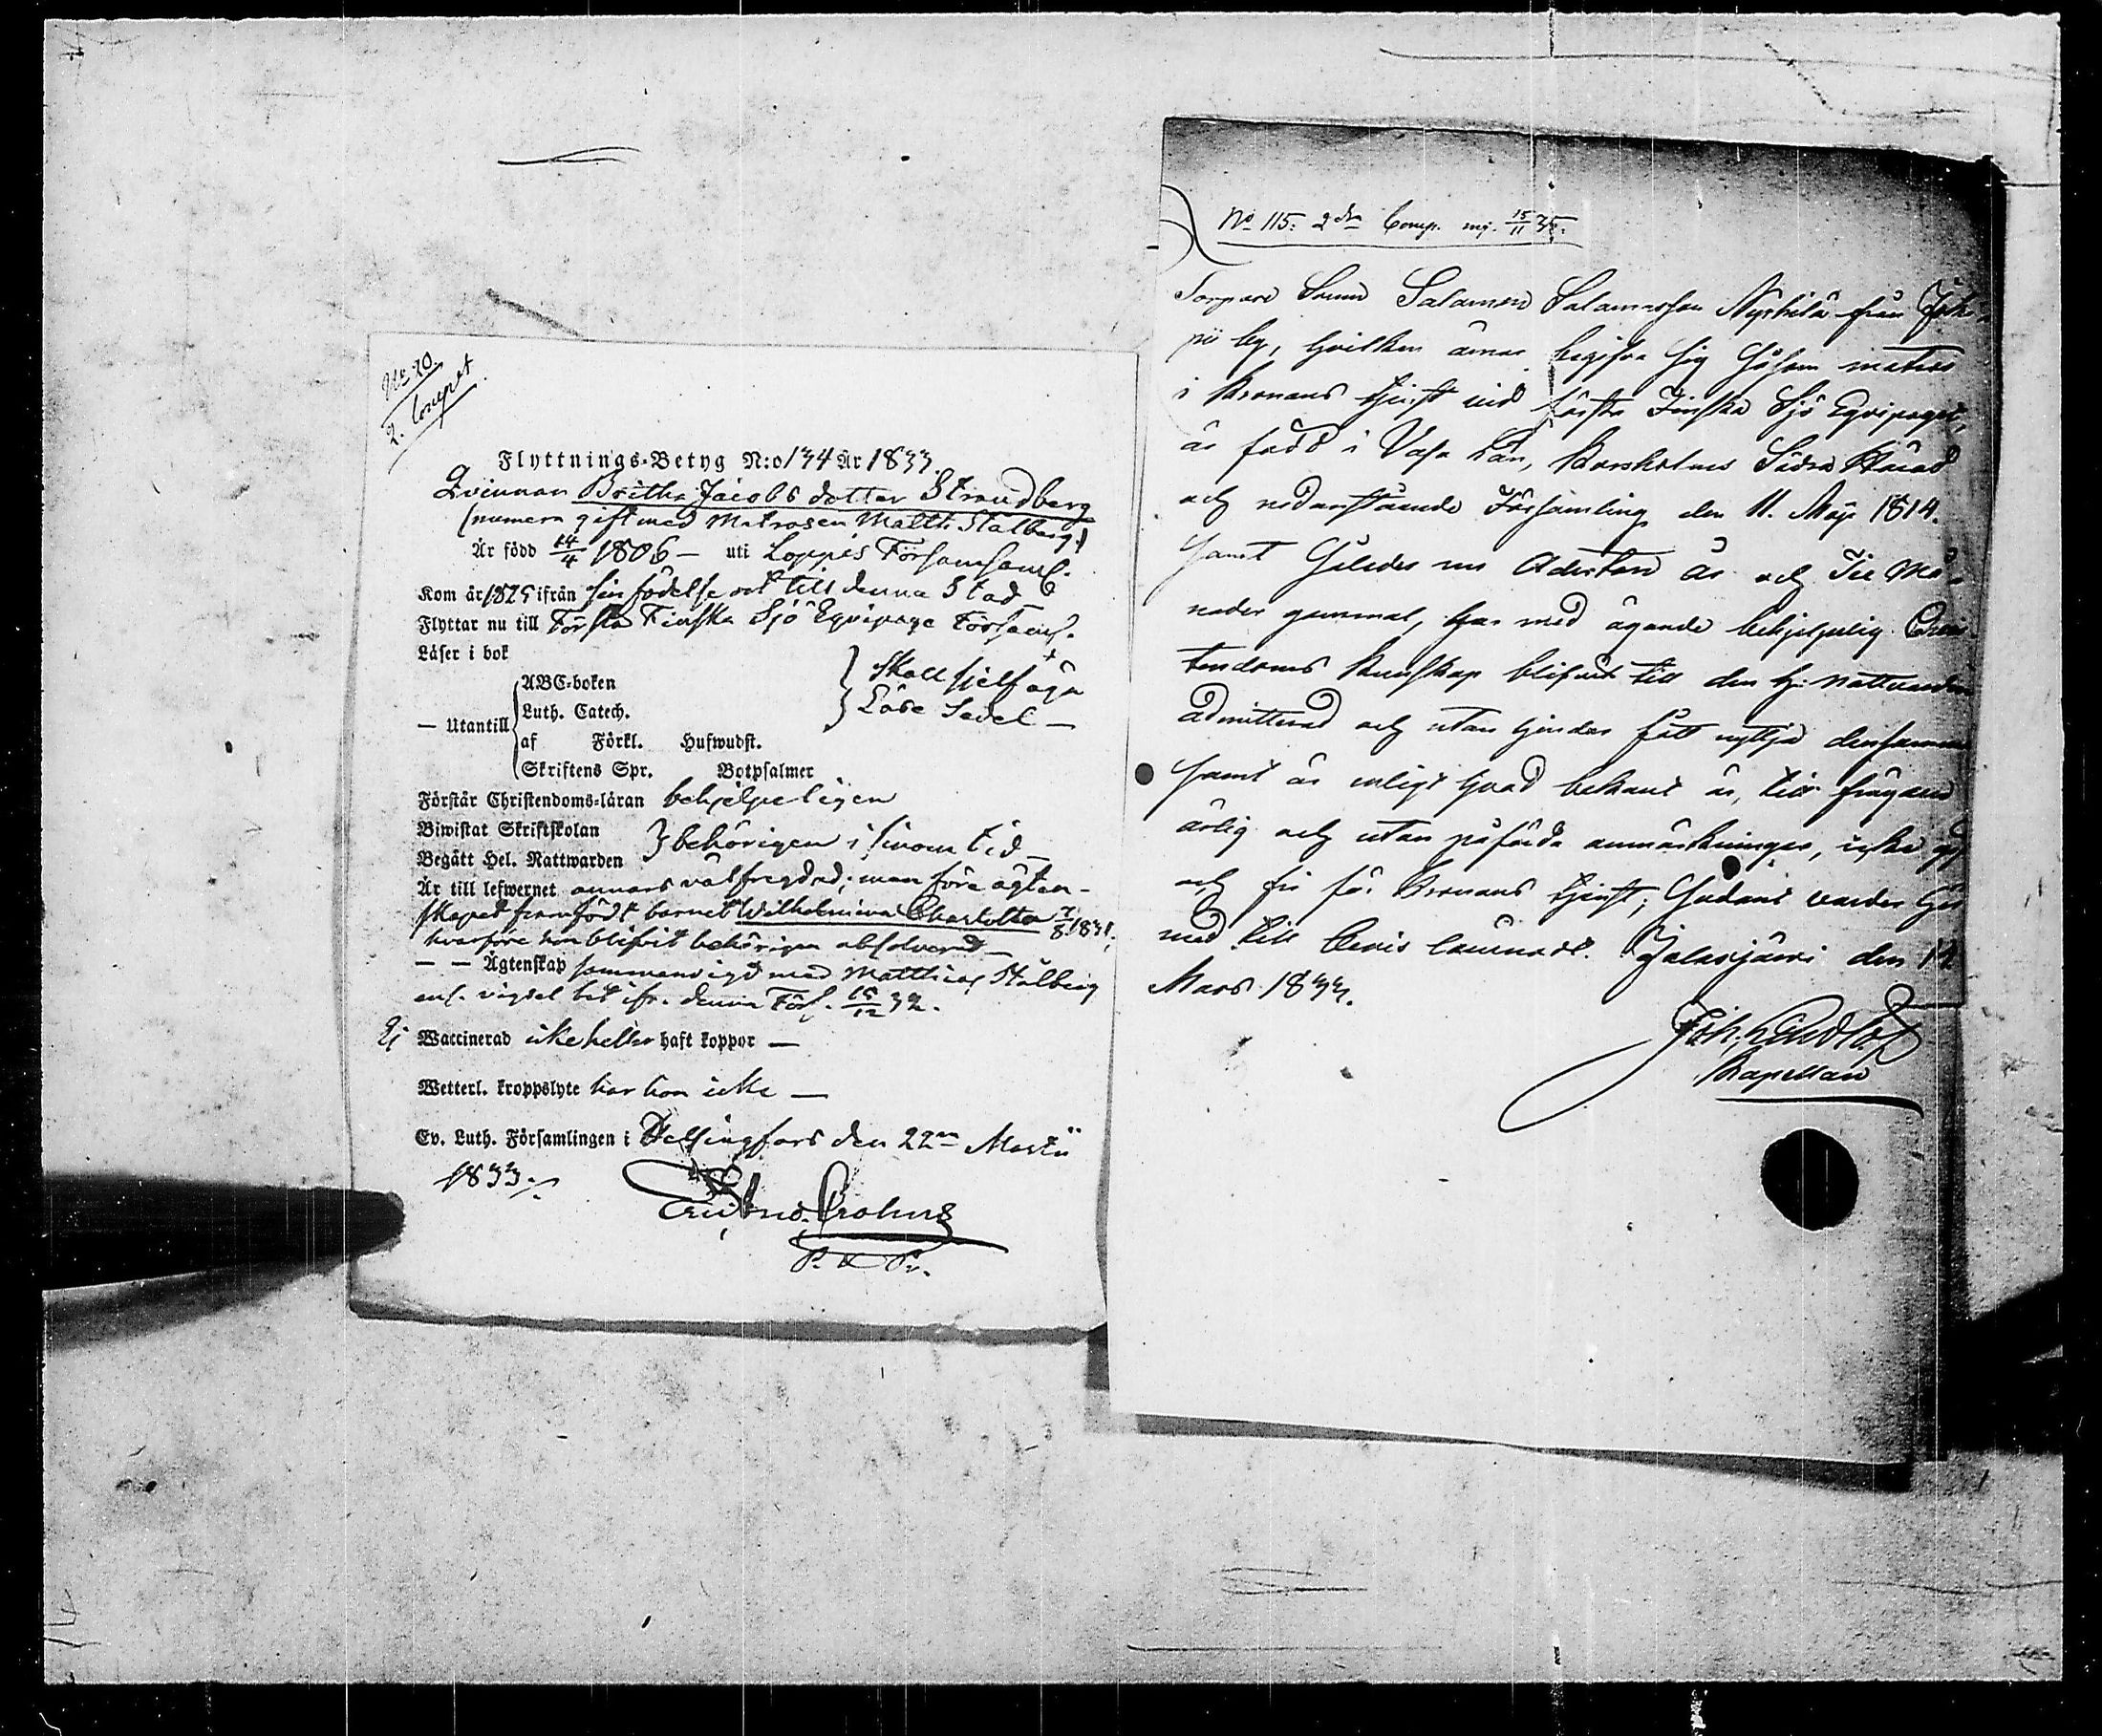 No 20.
2. Compet
Flyttnings-Betyg N:o 134 År 1833.
Qvinnan Britha Jacobs dotter Strandberg
(numera gift med Matrosen Matth. Stålberg)
Är född 14/4 1806 – uti Loppis Församl.
Kom år 1825 ifrån sin födelse ort till denna Stad
Flyttar nu till Första Finska Sjö Equipage Församl.
Läser i bok
ABC-boken
Luth. Catech.
— Utantill
af Förkl. Hufwudst.
Skriftens Spr. Botpsalmer
} Skall sjelf äga
} Läse Sedel —
Förstår Christendoms-läran behjelpeligen
Biwistat Skriftskolan
Begått Hel. Nattwarden } behörigen i sinom tid —
Är till lefwernet annars välfregdad; men före ägten-
skapet framfödt barnet Wilhelmina Charlotta 7/8 1831,
hvarföre hon blifvit behörigen absolverad —
— — Ägtenskap sammanvigd med Matthias Stålberg
enl. vigsel bet. ifr. denna Förs. 15/12 32.
Ej Waccinerad icke heller haft koppor —
Wetterl. kroppslyte har hon icke —
Ev. Luth. Församlingen i Helsingfors den 22 Martii
1833.
Crohns
No 115. 2dra Comp. 15/11 35.
Torpare Sonen Salomon Salomonsson från
by, hvilken ämnar begifva sig såsom matros
i Kronans tjenst vid första Finska Sjö Equipaget,
är född i Vasa Län, Korsholms Södra Härad
och nedanstående Församling den 11. Maji 1814.
samt således nu Aderton år och Tie Må-
nader gammal, har med ägande behjelpelig Chris-
tendoms kunskap blifvit till den H. Nattvarden
admitterad och utan hinder fått nyttja densamma
samt är enligt hvad bekant är, till frägden
ärlig och utan påförda anmärkningar, icke gift
och fri för Kronans tjenst; Sådant varder här
med till bevis lämnadt. Jalasjärvi den 12
Mars 1833.
Kapellan